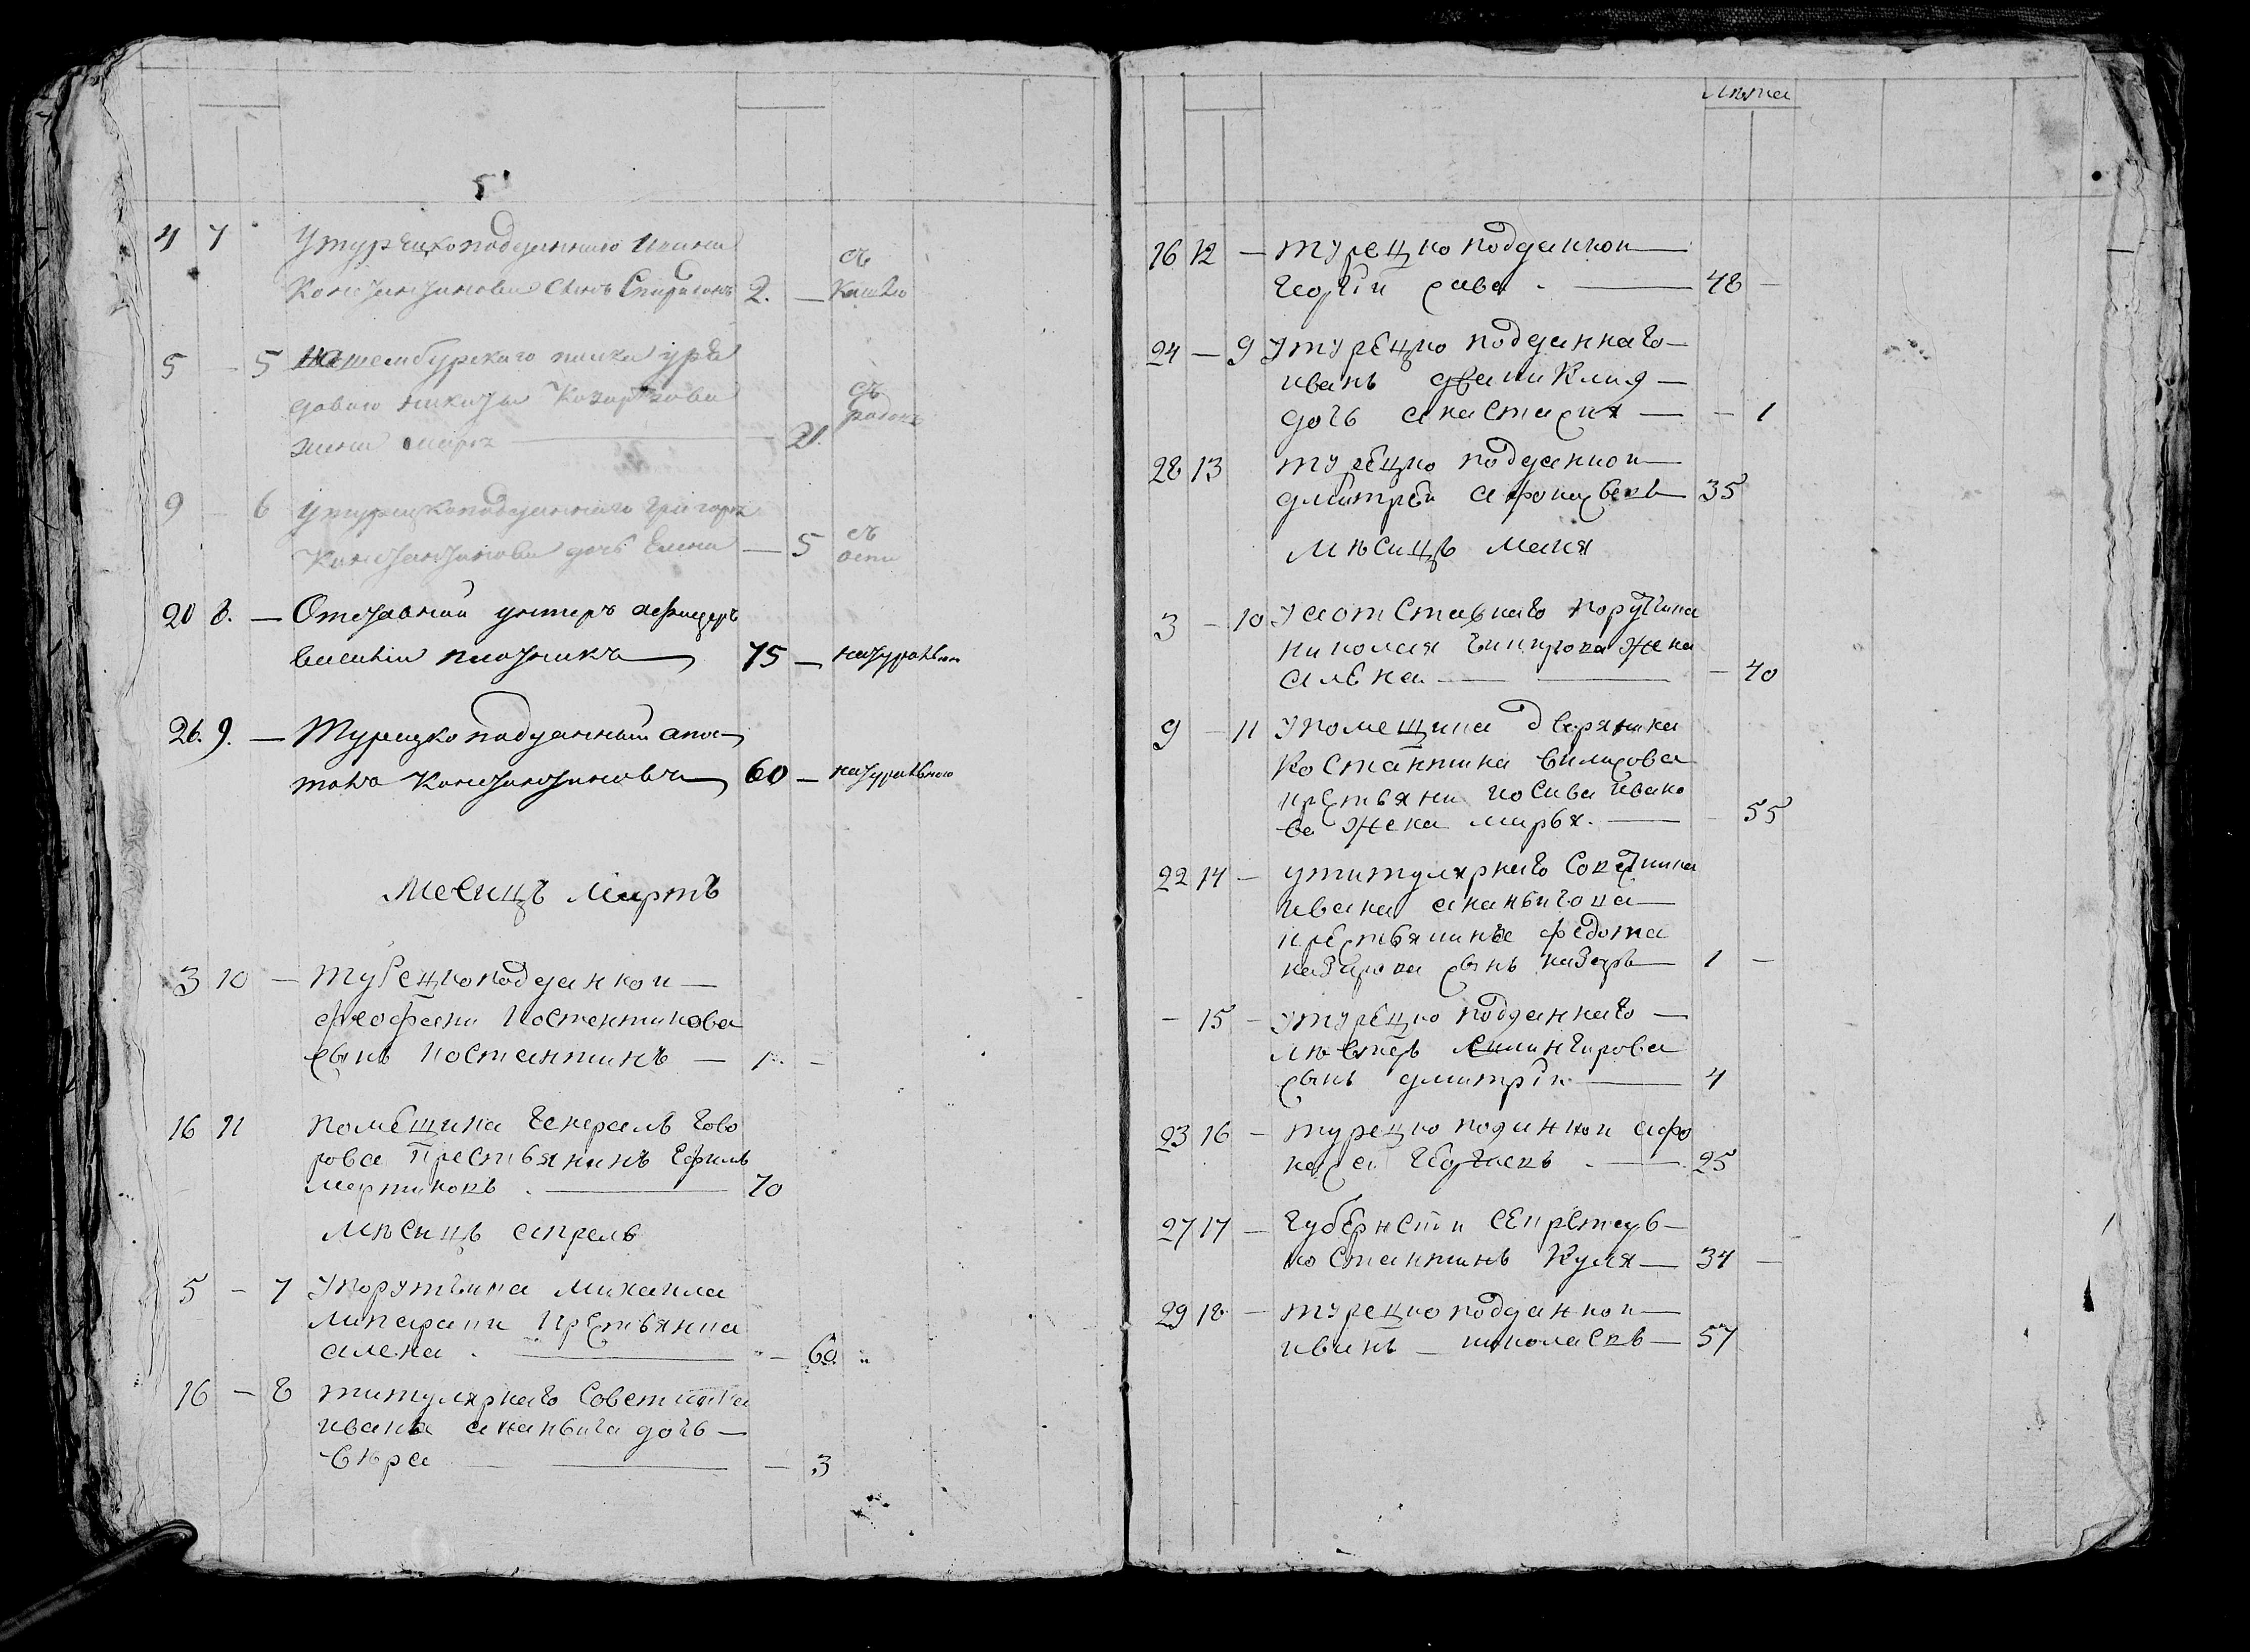 5
4 7 Утурецкоподданнаго
Константинова сынъ Спиридонъ 2. — съ кашлю
5 — 5 полка
доваго никиты
жена 21. съ родовъ
9 — 6 Утурецкоподданнаго григорія
Константинова дочь Елена — 5 съ оспи
20 8. — Отставний унтеръ афицеръ
василій плотникъ 75 — натуральн
26. 9. — Турецкоподданный апос
толъ Константиновъ 60 — натуральною
Месицъ Мартъ
3 10 — турецкоподданнои —
феофани костентинова
сынъ костантинъ — 1 —
16 11 помещика генералъ гово
рова крестьянинъ Ефимъ
мартиновъ . — 70
Мѣсицъ апрель
5 — 7 Упорутчика михаила
крестьянка
алена . — — 60
16 — 8 титулярнаго Советника
ивана ананьича дочь —
— 3
Лѣта
16 12 — турецко подданнои —
георгій сава . — 48 —
24 — 9 Утурецко подданнаго —
иванъ
дочь анастасия — — 1
28 13 турецко подданнои —
дмитрей афонасьевъ 35
мѣсицъ маия
3 — 10 Уаотставнаго порутчика
николая жена
алена — — 40
9 — 11 Упомещика дваряника
костантина
крестьяни иосива ивано
ва жена марья. — 55
22 14 — утитулярнаго Советника
ивана ананьичоча —
крестьянина федота
назарова сынъ назаръ — 1 —
— 15 — Утурецко подданнаго —
сынъ дмитрій — 4
23 16 — турецко поданнои афо
насей георгиевъ . — 25
27 17 — губернстіи секретарь —
костантинъ Куля — 34 —
29 18 — турецко подданнои —
иванъ — николаевъ — 57